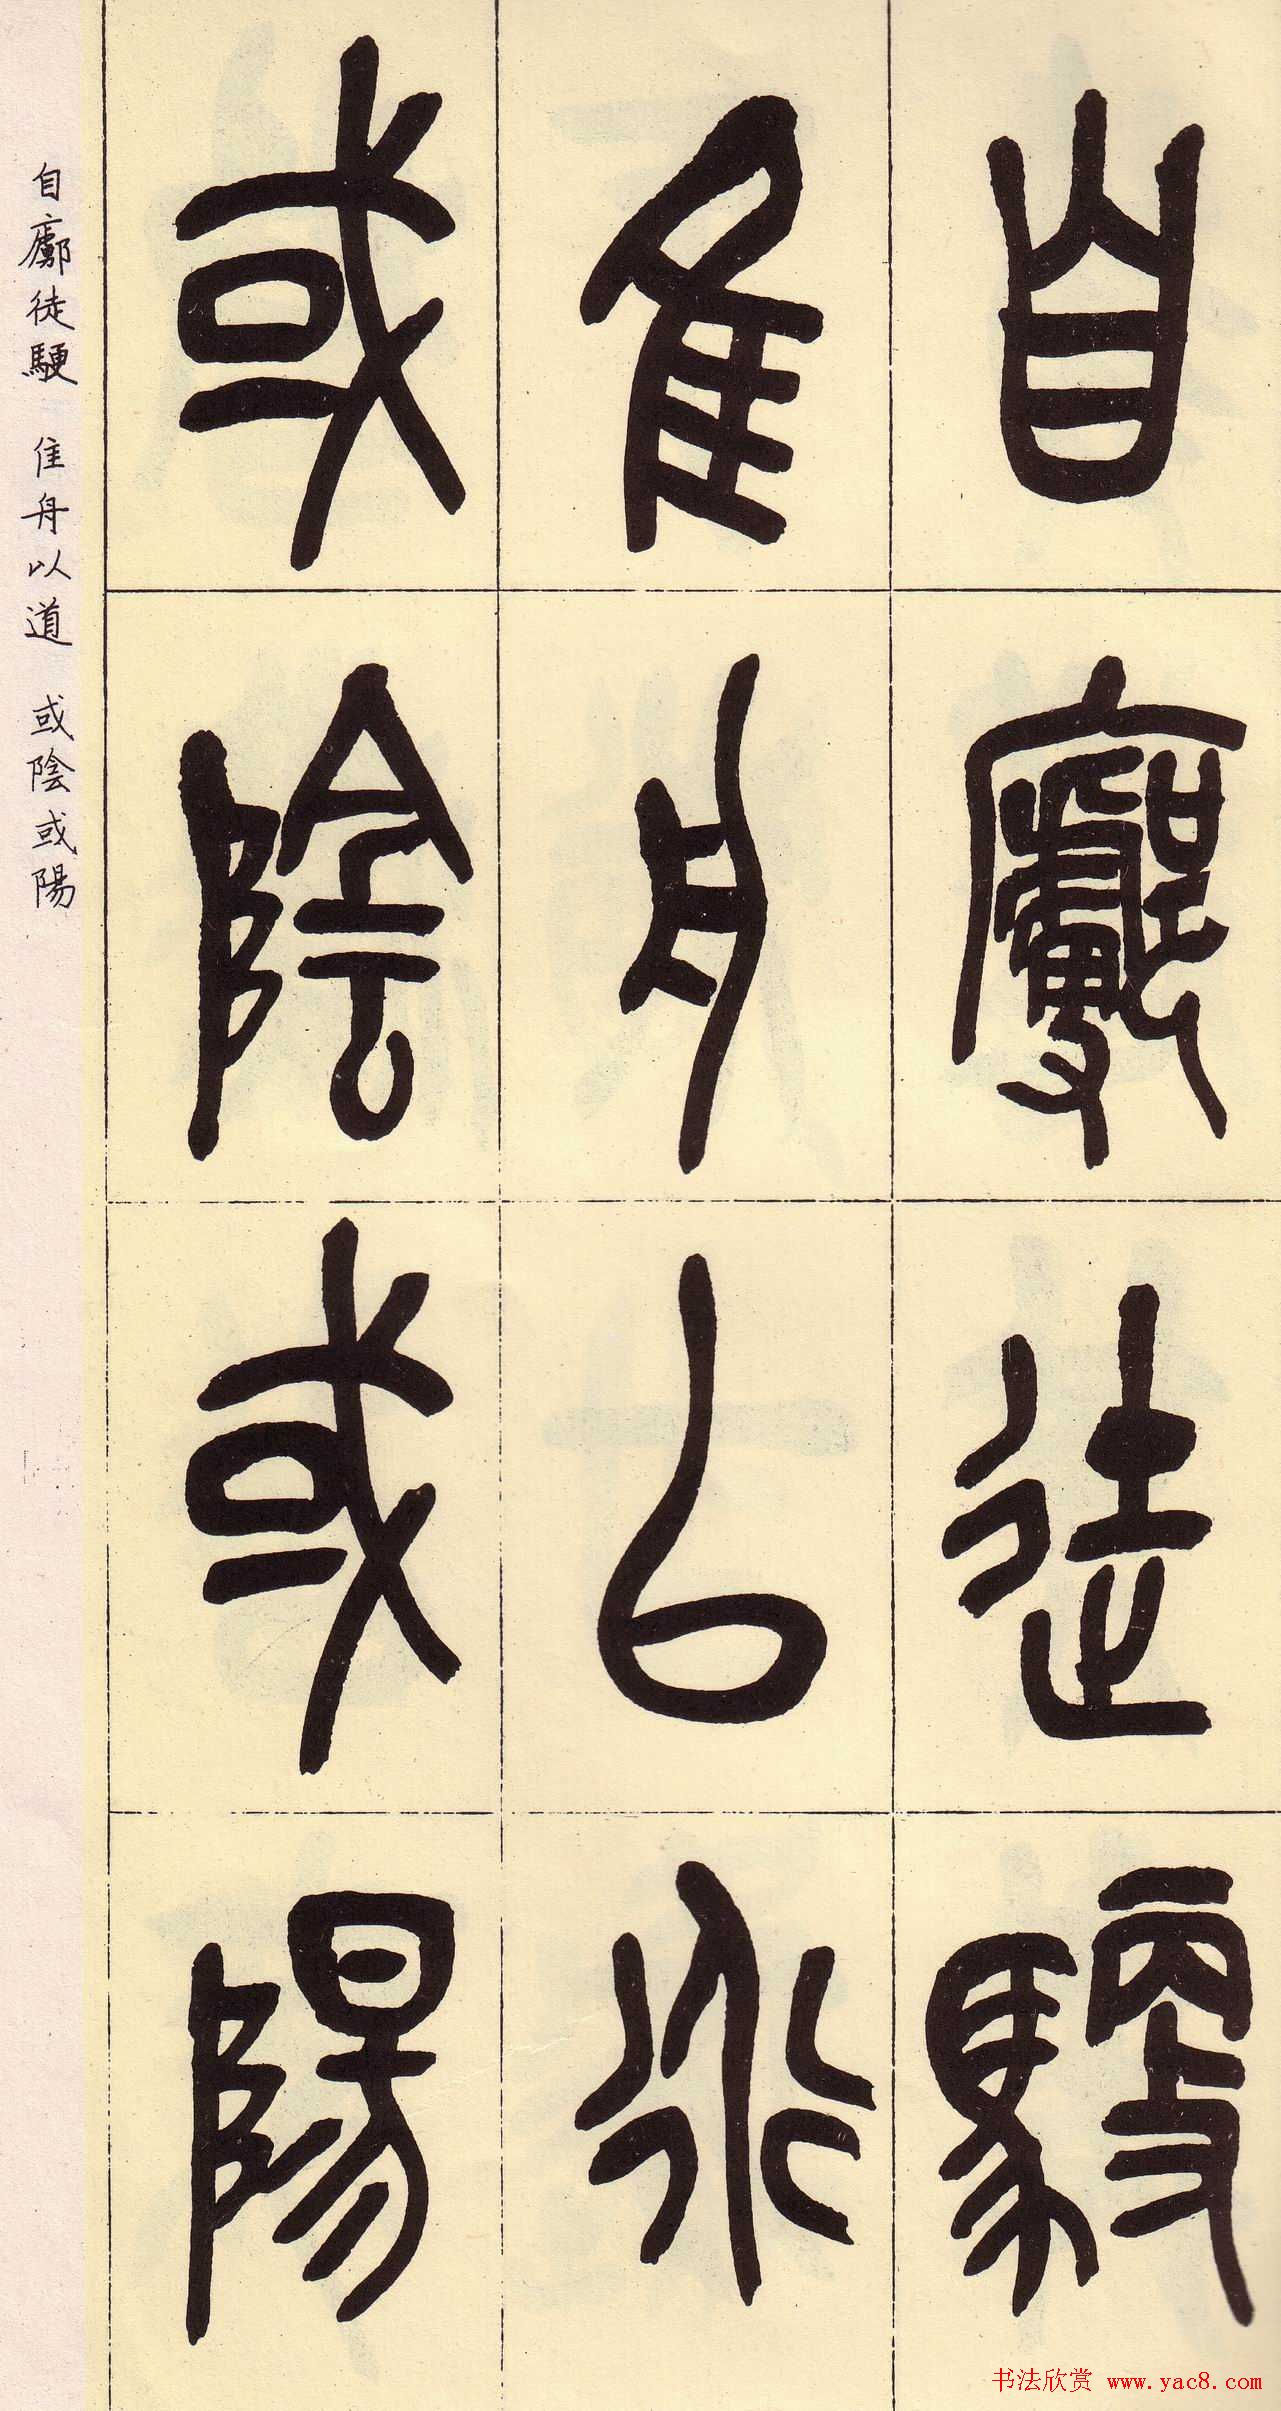 自廓徒騣
隹舟以道
或陰或陽
自廓徒騣 隹舟以道 或陰或陽
书法欣赏 www.yac8.com